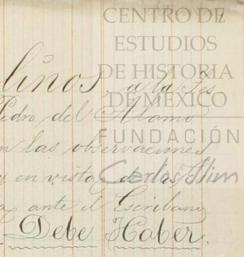 CENTRO DE
ESTUDIOS
DE HISTORIA
DE MÉXICO
FUNDACIÓN
Carlos Slim
liños, a la
Pedro del Alamo
las observaciones
y en vista de
ante el Escribano
Debe Haber.